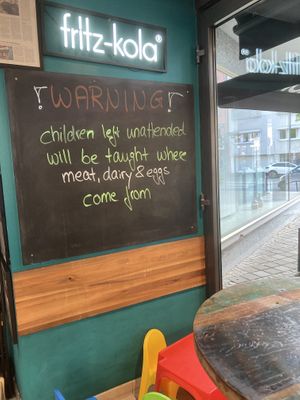 fritz-kola®
!WARNING!
children left unattended
will be taught where
meat, dairy & eggs
come from
fritz-kola